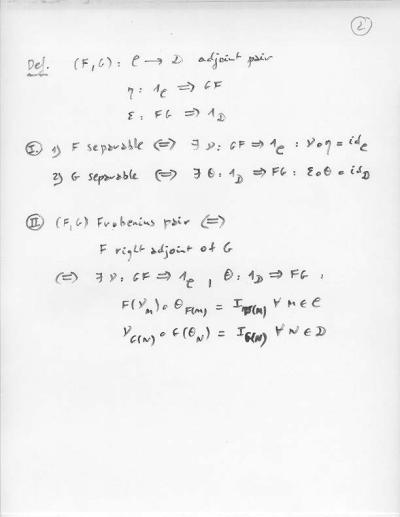 2
Def. (F,G): C → D adjoint pair
η: 1_C ⇒ GF
ε: FG ⇒ 1_D
I. 1) F separable ⇔ ∃ ν: GF ⇒ 1_C : ν∘η = id_C
2) G separable ⇔ ∃ θ: 1_D ⇒ FG : ε∘θ = id_D
II. (F,G) Frobenius pair ⇔
F right adjoint of G
⇔ ∃ ν: GF ⇒ 1_C , θ: 1_D ⇒ FG :
F(ν_M) ∘ θ_F(M) = I_F(M) ∀ M ∈ C
ν_G(N) ∘ G(θ_N) = I_G(N) ∀ N ∈ D